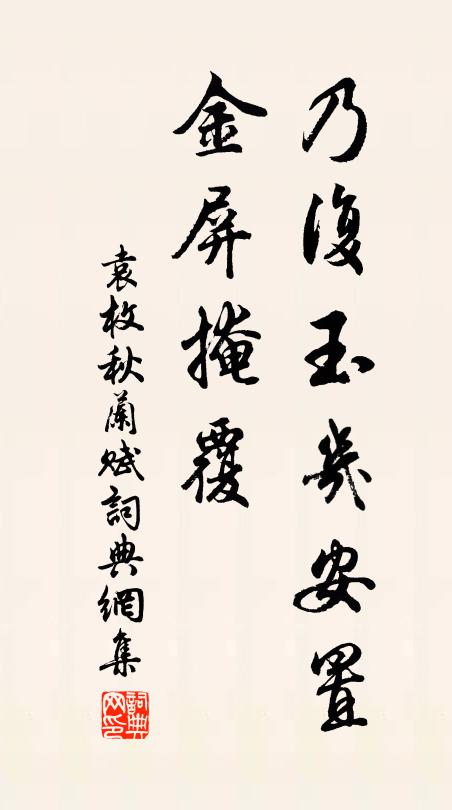 乃復玉幾安置
金屏掩覆
袁枚秋蘭賦詞典網集
詞典网印